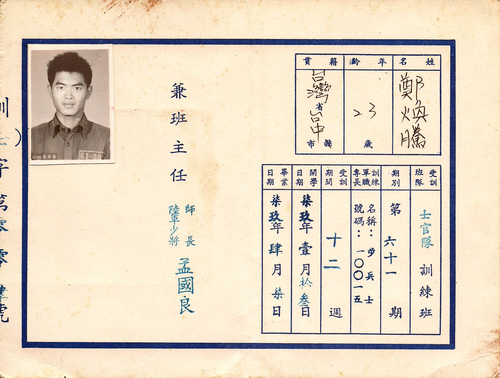 姓名
鄭煥騰
年齡
23
歲
籍貫
台灣
省
台中
縣市
受訓班隊
士官隊 訓練班
期別
第六十一期
訓練軍職專長
名稱：步兵士
號碼：一〇〇一五
受訓期間
十二週
開學日期
柒玖年壹月拾叁日
畢業日期
柒玖年肆月柒日
兼班主任
師長
陸軍少將
孟國良
訓
字第零零肆號